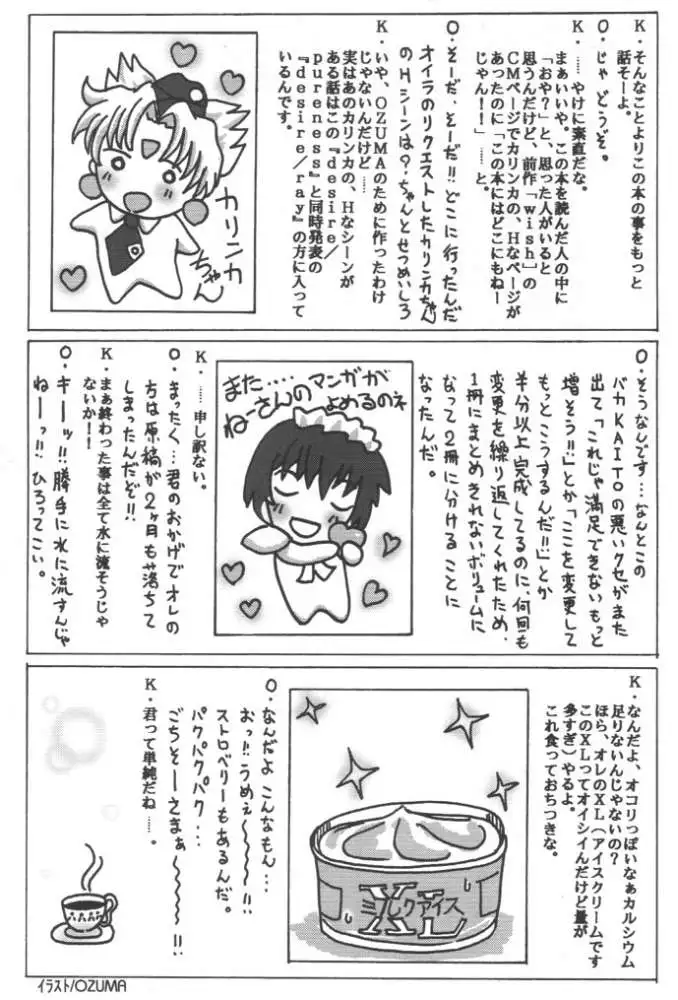 K．そんなことよりこの本の事をもっと
話そーよ。
O．じゃ どうぞ。
K．……やけに素直だな。
まぁいいや。この本を読んだ人の中に
「おや？」と、思った人がいると
思うんだけど、前作「wish」の
CMページでカリンカの、Hなページが
あったのに「この本にはどこにもねー
じゃん！！」……と。
O．そーだ、そーだ!! どこに行ったんだ
オイラのリクエストしたカリンカちゃん
のHシーンは？ちゃんとせつめいしろ
K．いや、OZUMAのために作ったわけ
じゃないんだけど……
実はあのカリンカの、Hなシーンが
ある話はこの『desire／
pureness』と同時発表の
『desire／ray』の方に入って
いるんです。
カリンカ
ちゃん
O．そうなんです…なんとこの
バカKAITOの悪いクセがまた
出て「これじゃ満足できないもっと
増そう!!」とか「ここを変更して
もっとこうするんだ!!」とか
半分以上完成してるのに、何回も
変更を繰り返してくれたため、
1冊にまとめきれないボリュームに
なって2冊に分けることに
なったんだ。
また……マンガが
ねーさんの よめるのネ
K．……申し訳ない。
O．まったく…君のおかげでオレの
方は原稿が2ヶ月も落ちて
しまったんだぞ!!
K．まぁ終わった事は全て水に流そうじゃ
ないか！！
O．キーッ!! 勝手に水に流すんじゃ
ねーっ!! ひろってこい。
K．なんだよ、オコりっぽいなぁカルシウム
足りないんじゃないの？
ほら、オレのXL（アイスクリームです
このXLってオイシイんだけど量が
多すぎ）やるよ。
これ食っておちつきな。
XL
ミルクアイス
O．なんだよ こんなもん…
おっ!! うめぇ〜〜〜!!
ストロベリーもあるんだ。
パクパクパク…
ごちそーさまぁ〜〜〜!!
K．君って単純だね……。
イラスト/OZUMA